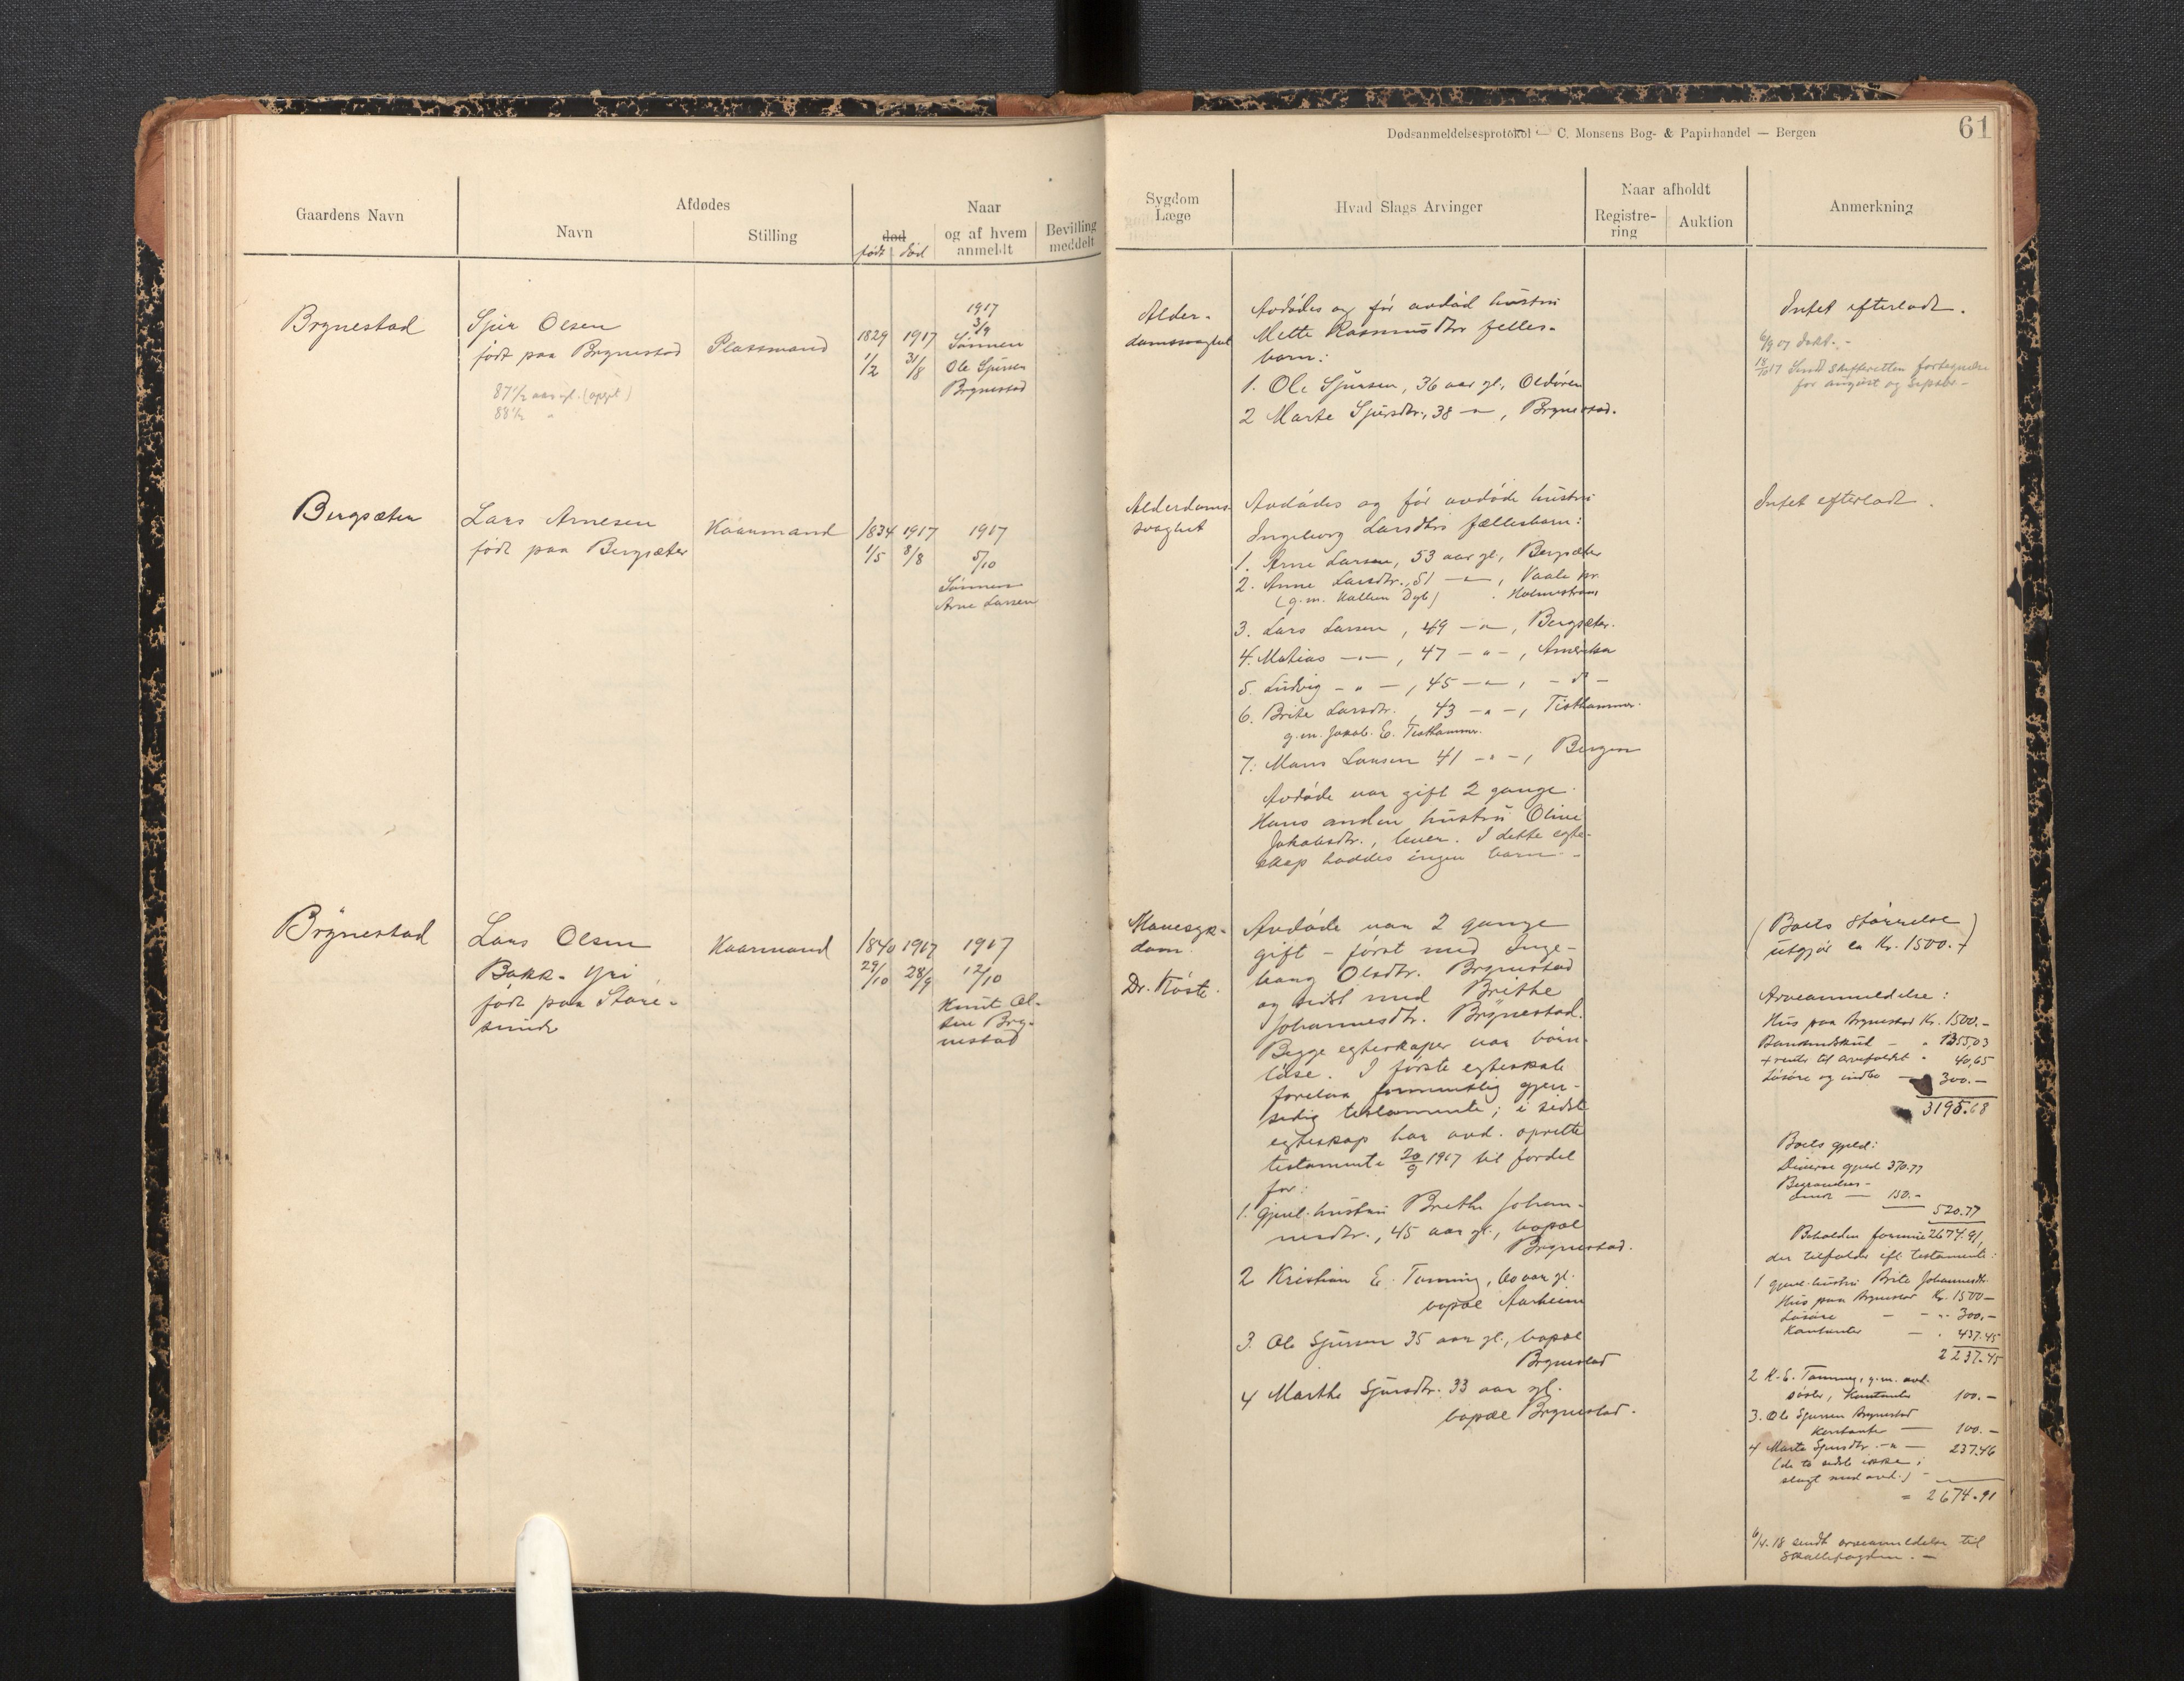 Dødsanmeldelsesprotokol — C. Monsens Bog- & Papirhandel — Bergen
61
Gaardens Navn
Afdødes
Navn
Stilling
Naar
død
født død
og af hvem
anmeldt
Bevilling
meddelt
Sygdom
Læge
Hvad Slags Arvinger
Naar afholdt
Registre-
ring
Auktion
Anmerkning
Brynestad
Sjur Olsen
født paa Brynestad
87½ aar gl. (opgit)
88½ "
Plassmand
1829 1917
1/2 31/8
1917
3/9
Sønnen
Ole Sjursen
Brynestad
Alder-
domssvaghet
Avdødes og før avdød hustru
Mette Rasmusdtr felles-
barn:
1. Ole Sjursen, 36 aar gl., Oldøren
2 Marte Sjursdtr., 38 -"-, Brynestad.
Intet efterladt.
for august og septbr -
Bergsæter
Lars Arnesen
født paa Bergsæter
Kaarmand
1834 1917
1/5 8/8
1917
5/10
Sønnen
Arne Larsen
Alderdoms-
svaghet
Avdødes og før avdøde hustru
Ingeborg Larsdtrs fællesbarn:
1. Arne Larsen, 53 aar gl., Bergsæter
2. Anne Larsdtr., 51 -"-, Vaale pr.
(g.m. Dyb) Holmestrand
3. Lars Larsen, 49 -"-, Bergsæter.
4. Matias -"-, 47 -"-, Amerika
5. Ludvig -"-, 45 -"-, - d° -
6. Brite Larsdtr. 43 -"-, Tisthammer.
g.m. Jakob E. Tisthammer.
7. Mons Larsen 41 -"-, Bergen
Avdøde var gift 2 gange.
Hans anden hustru Oline
Jakobsdtr., lever. I dette egte-
skap haddes ingen barn. -
Intet efterladt.
Brynestad
Lars Olsen
Bakk-Yri
født paa Støre-
sunde
Kaarmand
1840 1917
29/10 28/9
1917
12/10
Knut Ol-
sen Bry-
nestad
Mavesyk-
dom
Dr. Kaste.
Avdøde var 2 gange
gift - først med Inge-
borg Olsdtr. Brynestad
og sidst med Brithe
Johannesdtr. Brynestad.
Begge egteskaper var barn-
løse. I første egteskab
forelaa formentlig gjen-
sidig testamente; i sidste
egteskap har avd. oprettet
testamente 20/9 1917 til fordel
for:
1. Gjenl. hustru Brithe Johan-
nesdtr., 45 aar gl., bopæl
Brynestad.
2 Kristian E. Tonning, 60 aar gl.
bopæl Aarheim
3. Ole Sjursen 35 aar gl., bopæl
Brynestad
4 Marthe Sjursdtr. 33 aar gl.
bopæl Brynestad.
(Boets størrelse
utgjør ca Kr. 1500.-)
Arveanmeldelse:
Hus paa Brynestad Kr. 1500.-
Bankindskud - " 1355,03
+ renter til arvefaldet " 40,65
Løsøre og indbo - 300.-
3195.68
Boets gjeld:
Diverse gjeld 370.77
Begravelses-
omk. — 150.-
520.77
Beholden formue 2674.91,
der tilfalder efl. testamente:
1 gjenl. hustru Brite Johannesdtr.
Hus paa Brynestad Kr. 1500—
Løsøre - - " 300.-
Kontanter - " 437.45
2237.45
2 K. E. Tonning, g.m. avd.
søster, Kontanter 100.-
3. Ole Sjursen Brynestad
Kontanter — 100.-
4 Marte Sjursdtr. -"- 237.46
(de to sidste ikke i
slegt med avd.)
= 2674.91
6/4. 18 sendt arveanmeldelse til
Skattefogden. —